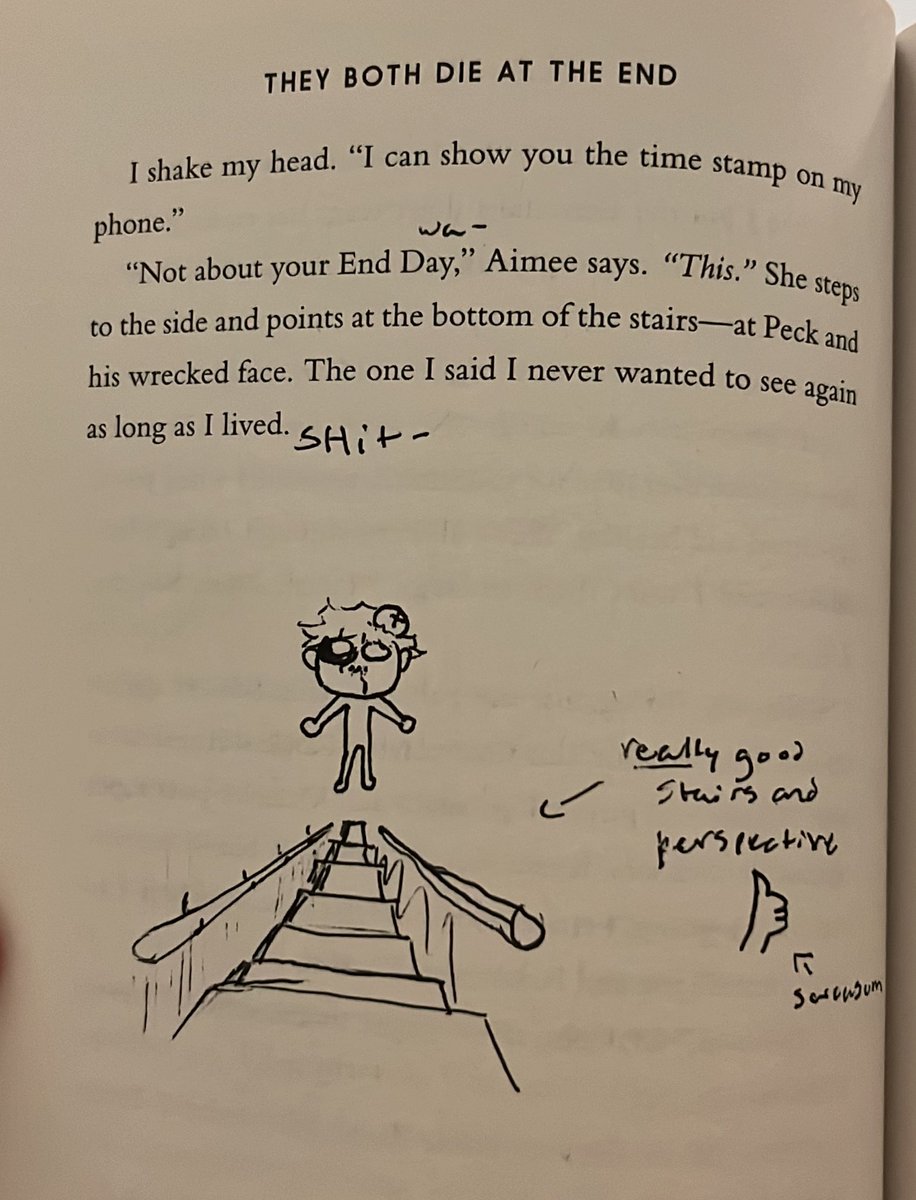 THEY BOTH DIE AT THE END
I shake my head. “I can show you the time stamp on my
phone.”
wa-
“Not about your End Day,” Aimee says. “This.” She steps
to the side and points at the bottom of the stairs—at Peck and
his wrecked face. The one I said I never wanted to see again
as long as I lived.
SHit-
really good
stairs and
perspective